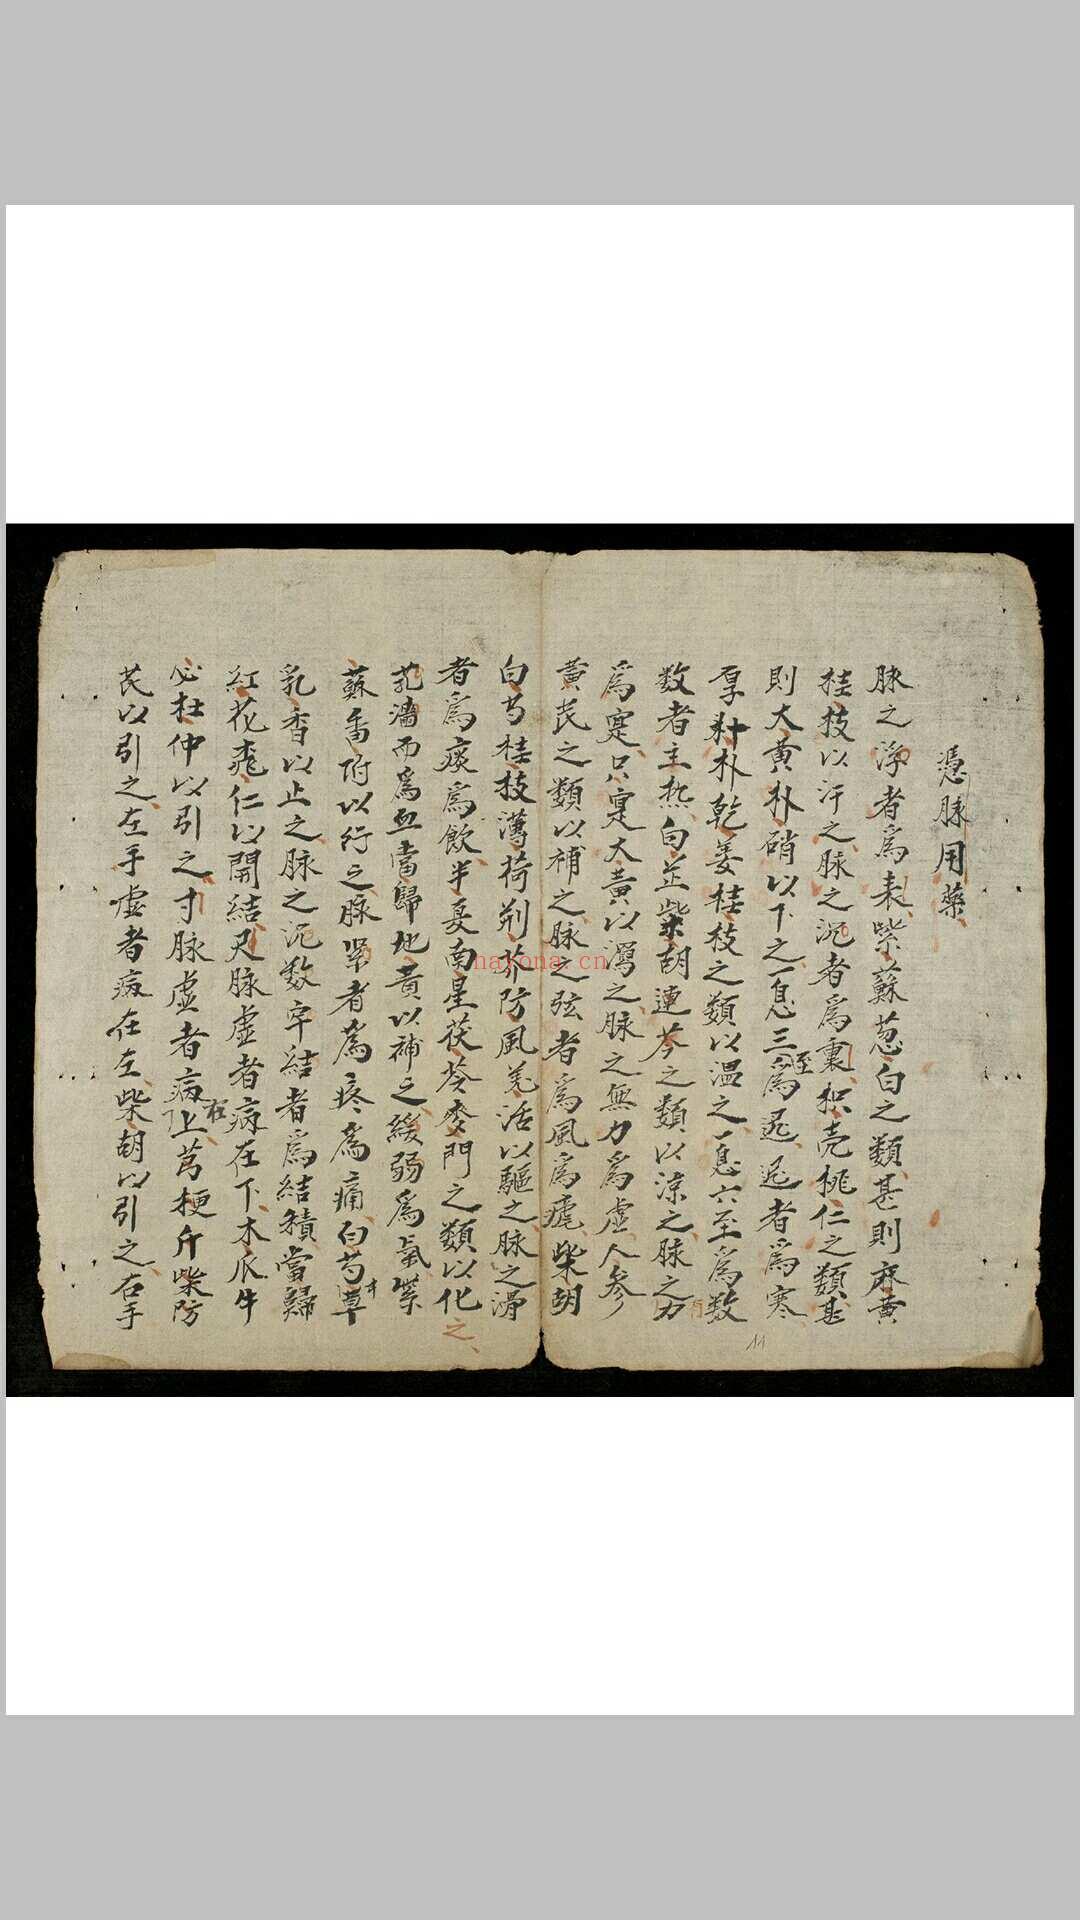 憑脉用藥
脉之浮者為表紫蘇葱白之類甚則麻黄
桂枝以汗之脉之沉者為裏枳壳桃仁之類甚
則大黄朴硝以下之一息三至為遲遲者為寒
厚朴乾姜桂枝之類以温之一息六至為数
数者主热白芷柴胡連芩之類以涼之脉之力
為寔只寔大黄以瀉之脉之無力為虚人參
黄芪之類以補之脉之弦者為風為瘧柴胡
白芍桂枝薄荷荆芥防風羌活以驅之脉之滑
者為痰為飲半夏南星茯苓麥門之類以化
之
芤濇而為血當歸地黄以補之緩弱為氣紫
蘇香附以行之脉緊者為疼為痛白芍草
乳香以止之脉之沉数牢結者為結積當歸
紅花桃仁以開結尺脉虚者病在下木瓜牛
必杜仲以引之寸脉虚者病在上芎梗斤柴防
芪以引之左手虚者病在左柴胡以引之右手
nayona.cn
11